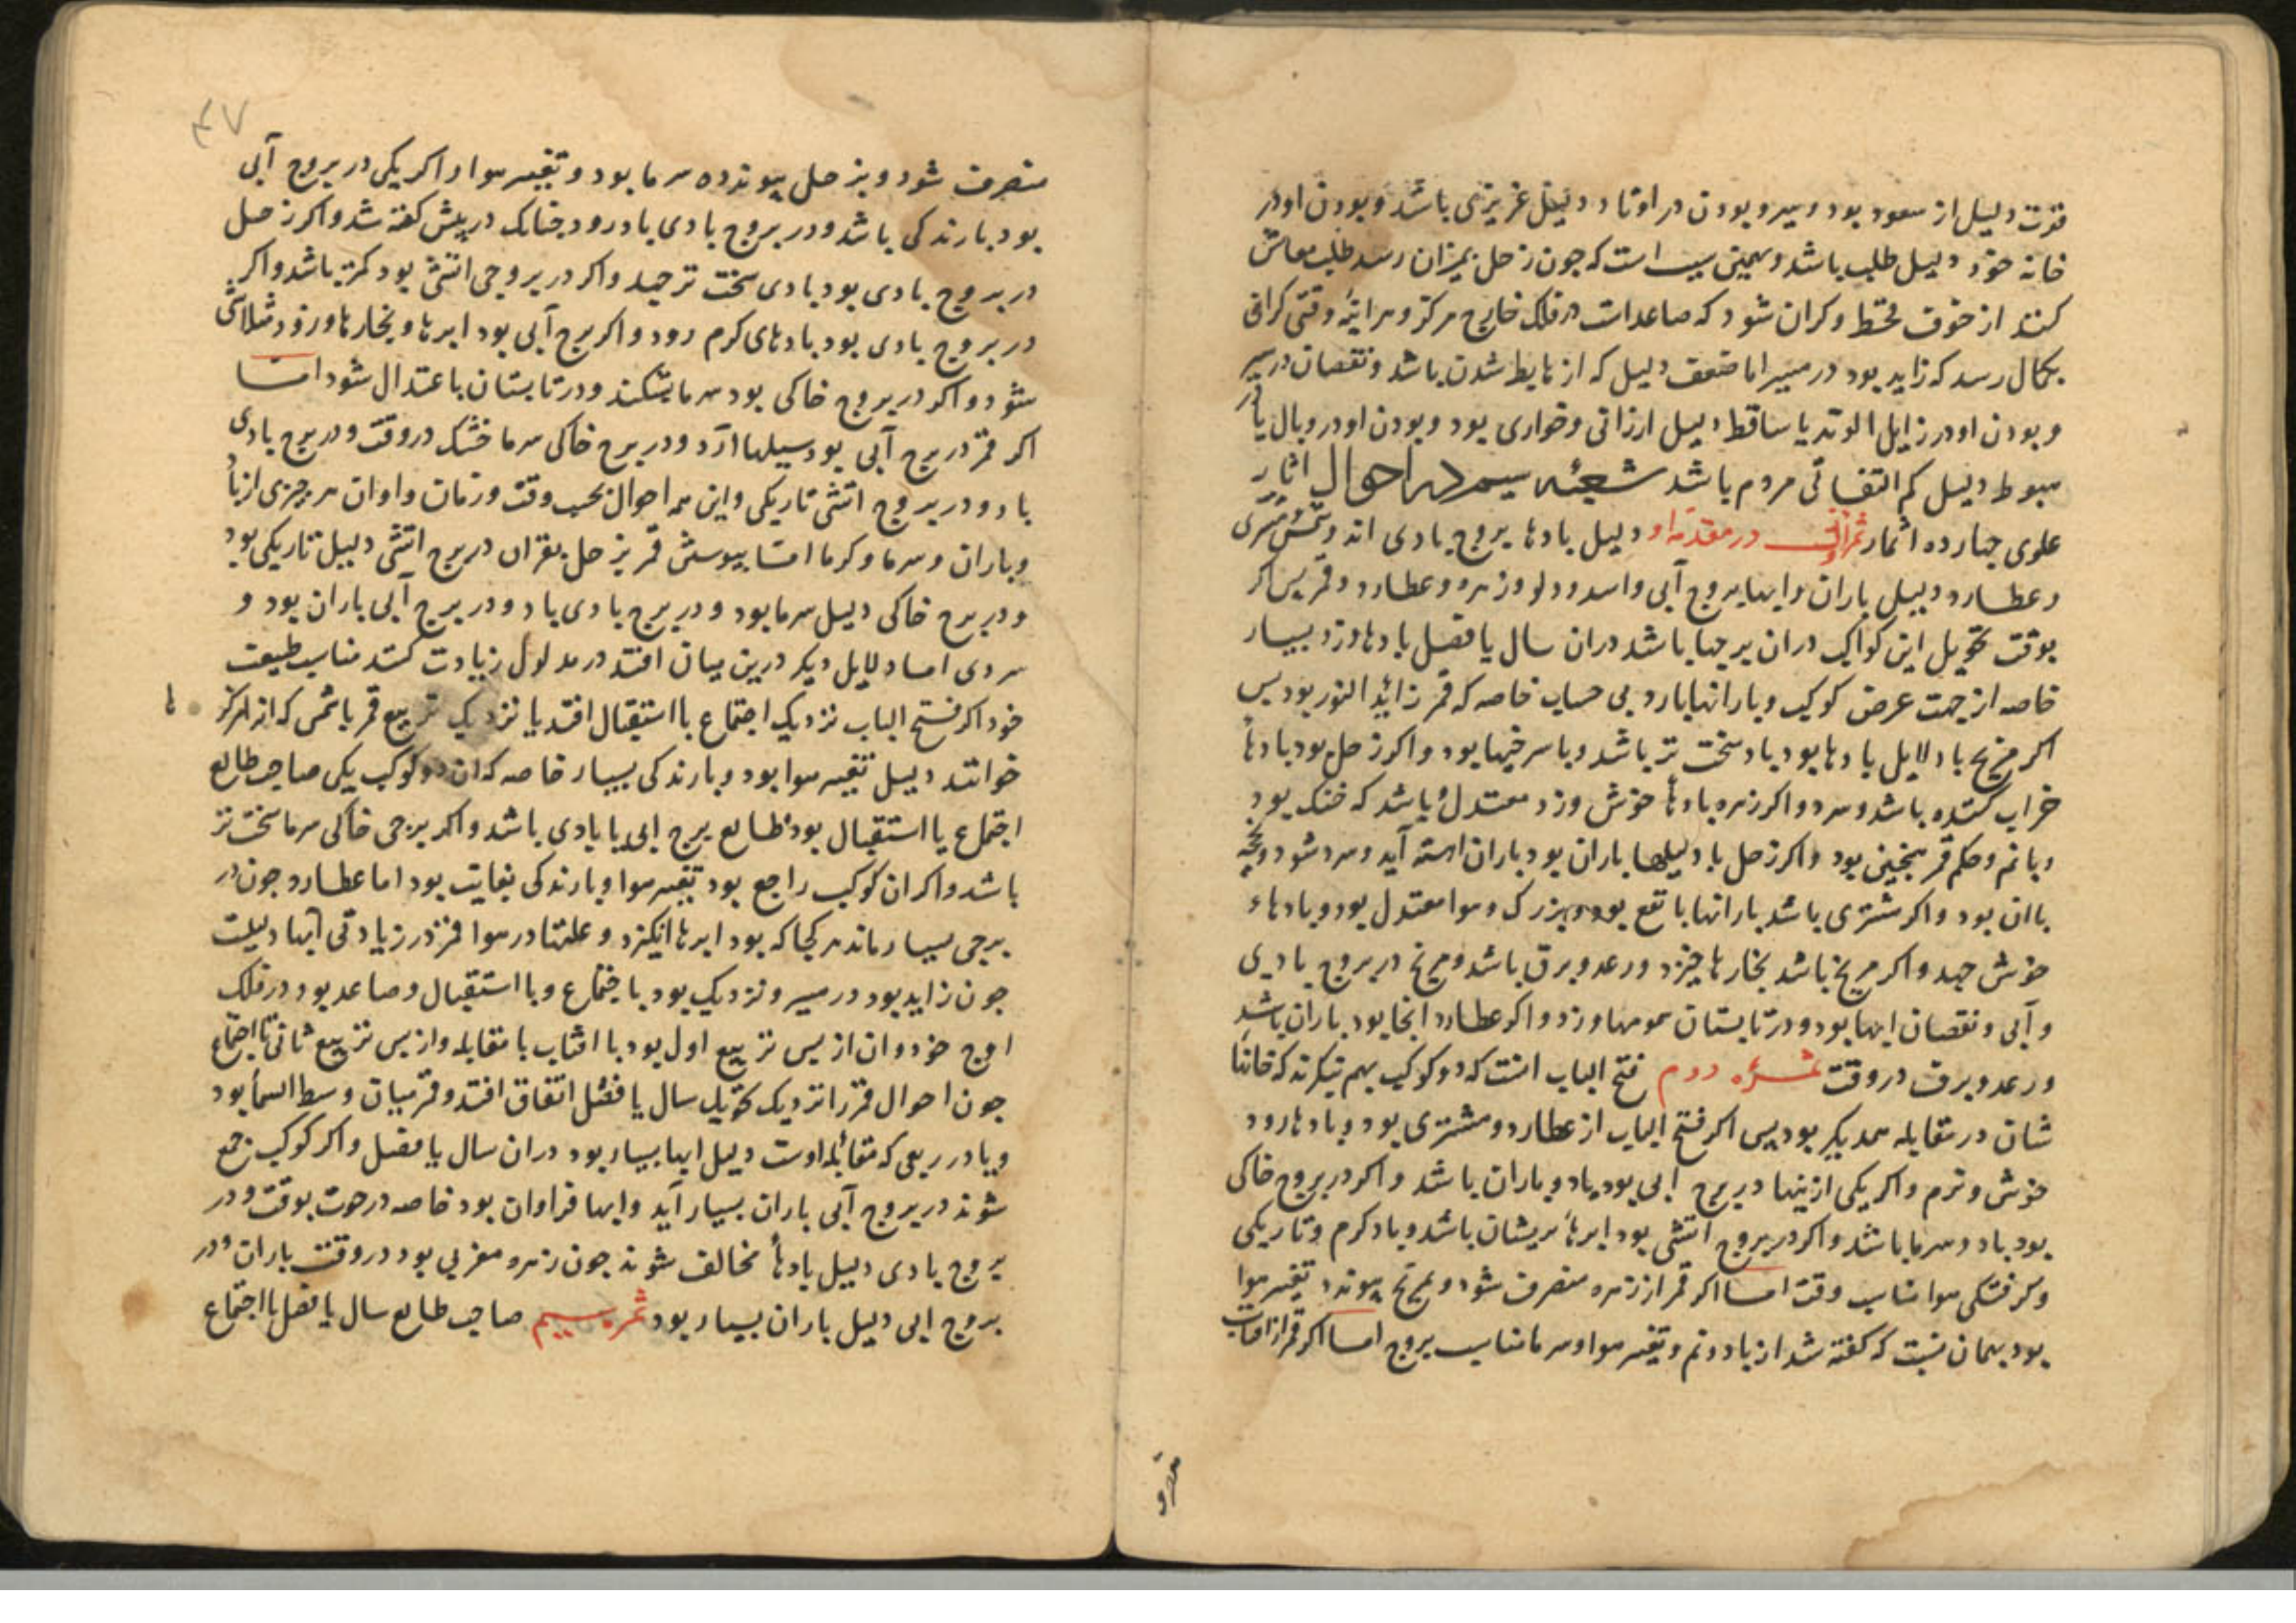 قوت دلیل از سعود بود و سیر و بودن در اوتاد دلیل عزیزی باشد و بودن او در
خانه خود دلیل طلب باشد و بهمین سبب است که جون زحل بمیزان رسد طلب معاش
کنند از خوف قحط و کران شود که صاعدات در فلک خارج مرکز و هر اینه وقتی کرانی
بکمال رسد که زاید بود در مسیر اما ضعف دلیل که از هابط شدن باشد و نقصان در سیر
و بودن او در زایل الوتد یا ساقط دلیل ارزانی و خواری بود و بودن او در وبال یا در
هبوط دلیل کم التفاتی مردم باشد شعبه سیم در احوال اثار
علوی جهارده اثمار ثمر اول در مقدمه او دلیل بادها بروج بادی اند و شمس مشتری
و عطارد و دلیل باران و ابرها بروج آبی و اسد و دلو و زهره و عطارد و قمر بس اکر
بوقت تحویل این کواکب در ان برجها باشد دران سال یا فصل بادها وزد بسیار
خاصه از جهت عرض کوکب و بارانها بارد بی حساب خاصه که قمر زائد النور بود بس
اکر مریخ با دلایل بادها بود باد سخت تر باشد و با سرخیها بود و اکر زحل بود بادها
خراب کننده باشد و سرد و اکر زهره بادها خوش وزد معتدل و باشد که خنک بود
و با نم و حکم قمر همچنین بود و اکر زحل با دلیلها باران بود باران اهسته آید و سرد شود و
باان بود و اکر مشتری باشد بارانها با نفع بود و بزرک و هوا معتدل بود و بادهاء
خوش جهد و اکر مریخ باشد بخارها خیزد و رعد و برق باشد و مریخ در بروج بادی
و آبی و نقصان ابرها بود و در تابستان سمومها وزد و اکر عطارد انجا بود باران باشد
و رعد و برق در وقت ثمره دوم فتح الباب انست که دو کوکب بهم نکرند که خانها
شان در مقابله همدیکر بود بس اکر فتح الباب از عطارد و مشتری بود و بادها رود
خوش و نرم و اکر یکی ازینها در برج ابی بود باد و باران باشد و اکر در بروج خاکی
بود باد و سرما باشد و اکر در بروج اتشی بود ابرها بریشان باشد و باد کرم و تاریکی
و کرفتکی هوا مناسب وقت اما اکر قمر از زهره منصرف شود و بمریخ پیوندد تغیر هوا
بود بهمان نسبت که کفته شد از باد و نم و تغیر هوا و سرما مناسب بروج اما اکر قمر از افتاب
۴۷
منصرف شود و بزحل پیوندد سرما بود و تغییر هوا و اکر یکی در بروج آبی
بود بارندکی باشد و در بروج بادی باد رود چنانک در پیش کفته شد و اکر زحل
در بروج بادی بود بادی سخت تر جهد و اکر در بروجی اتشی بود کمتر باشد و اکر
در بروج بادی بود بادهای کرم رود و اکر برج آبی بود ابرها و بخارها ورزد و متلاشی
شود و اکر در بروج خاکی بود سرما بشکند و در تابستان باعتدال شود اما
اکر قمر در برج آبی بود سیلها ارد و در برج خاکی سرما خشک در وقت و در برج بادی
باد و در بروج اتشی تاریکی و این همه احوال بحسب وقت و زمان و اوان هر چیزی از باد
و باران و سرما و کرما اما بیوستن قمر بزحل بقران در برج اتشی دلیل تاریکی بود
و در برج خاکی دلیل سرما بود و در برج بادی باد و در برج آبی باران بود و
سردی اما دلایل دیکر درین میان افتد در مدلول زیادت کند مناسب طبیعت
خود اکر فتح الباب نزدیک اجتماع یا استقبال افتد یا نزدیک تربیع قمر با شمس که انرا مرکز
ها
خوانند دلیل تغییر هوا بود و بارندکی بسیار خاصه که ان دو کوکب یکی صاحب طالع
اجتماع یا استقبال بود طالع برج ابی یا بادی باشد و اکر برجی خاکی سرما سخت تر
باشد و اکر ان کوکب راجع بود تغییر هوا و بارندکی بغایت بود اما عطارد جون در
برجی بسیار ماند هر کجا که بود ابرها انکیزد و علتها در هوا فزز در زیادتی آبها دلیلست
جون زاید بود در مسیر و نزدیک بود باجتماع و یا استقبال و صاعد بود در فلک
اوج خود و ان از پس تربیع اول بود با افتاب یا مقابله و از پس تربیع ثانی تا اجتماع
جون احوال قمر را نزدیک تحویل سال یا فصل اتفاق افتد و قمر میان وسط السما بود
و یا در ربعی که مقابله اوست دلیل ابها بسیار بود دران سال یا فصل و اکر کوکب جمع
شوند در بروج آبی باران بسیار آید و ابها فراوان بود خاصه در حوت بوقت و در
بروج بادی دلیل بادها مخالف شوند جون زهره مغربی بود در وقت باران و در
بروج ابی دلیل باران بسیار بود ثمره سیم صاحب طالع سال یا فصل یا اجتماع